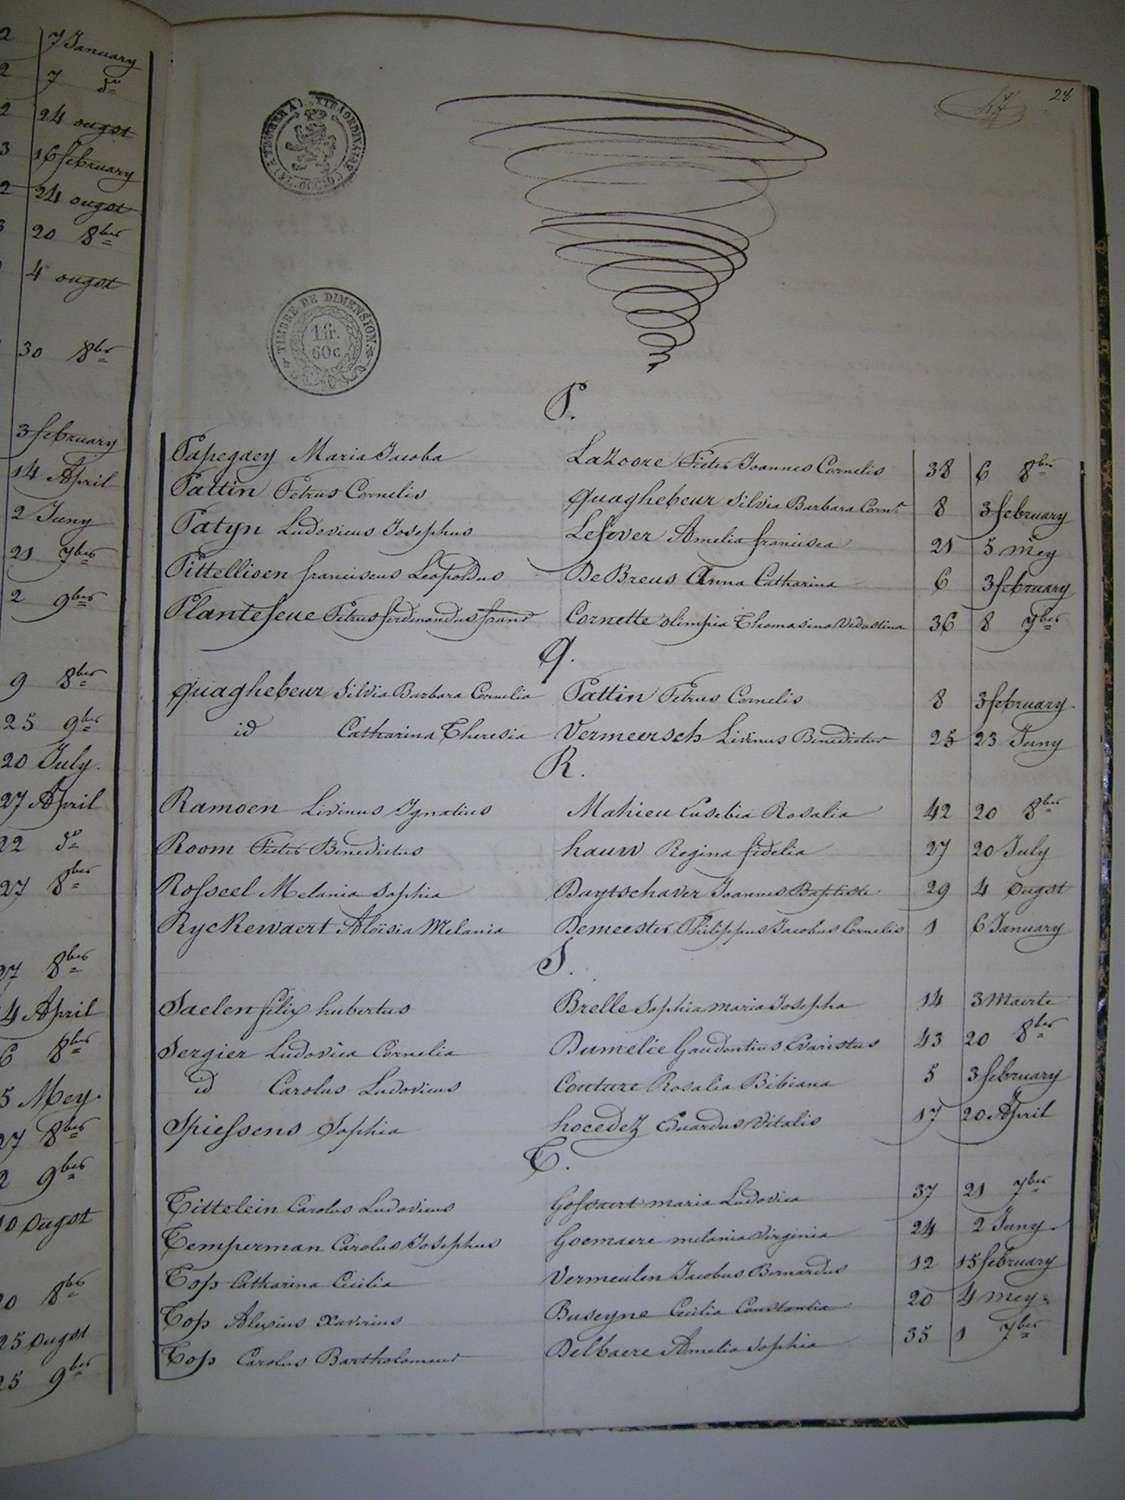 2 7 January
2 7 do
2 24 ougst
3 16 february
2 24 ougst
3 20 8ber
4 ougst
30 8ber
3 february
14 April
2 Juny
21 7ber
2 9ber
9 8ber
25 9ber
20 July.
27 April
22 do
27 8ber
27 8ber
4 April
6 8ber
5 Mey.
27 8ber
2 9ber
10 Ougst
20 8ber
25 Ougst
25 9ber
28
47
EXTRAORDINAIRE
TIMBRE DE DIMENSION.
1 fr.
60 c
P.
Papegaey Maria Jacoba Lazoore Pieter Joannes Cornelis 38 6 8ber
Pattin Petrus Cornelis Quaghebeur Silvia Barbara Corn. 8 3 february
Patyn Ludovicus Josephus Lefever Amelia francisca 21 5 Mey
Pittellioen franciscus Leopoldus De Breus Anna Catharina 6 3 february
Plantefeve Petrus ferdinandus franc Cornette olimpia Thomasina Vedastina 36 8 7ber
Q.
Quaghebeur Silvia Barbara Cornelia Pattin Petrus Cornelis 8 3 february.
id Catharina Theresia Vermeersch Livinus Benedictus 25 23 Juny
R.
Ramoen Livinus Ignatius Mahieu Eusebia Rosalia 42 20 8ber
Room Pieter Benedictus hauw Regina fidelia 27 20 July
Rosseel Melania Sophia Duytschaver Joannes Baptiste 29 4 Ougst
Ryckewaert Aloïsia Melania Demeester Philippus Jacobus Cornelis 1 6 January
S.
Saelen felix hubertus Brelle Sophia Maria Josepha 14 3 Maerte
Sergier Ludovica Cornelia Dumelie Gaudentius Evaristus 43 20 8ber
id Carolus Ludovicus Couture Rosalia Bibiana 5 3 february
Spiessens Sophia hocedez Eduardus Vitalis 17 20 April
T.
Tittelein Carolus Ludovicus Gossaert maria Ludovica 37 21 7ber
Temperman Carolus Josephus Goemaere melania Virginia 24 2 Juny.
Top Catharina Cecilia Vermeulen Jacobus Bernardus 12 15 february
Top Alexius Xaverius Buseyne Cecilia Constantia 20 4 mey.
Top Carolus Bartholomeus Delbaere Amelia Sophia 35 1 7ber